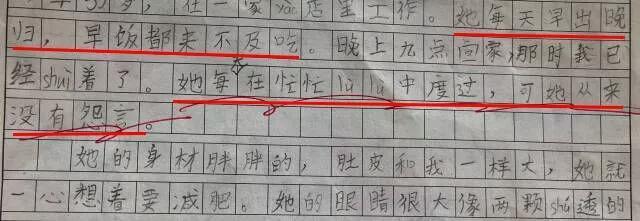 岁，在一家 店里工作。她每天早出晚
归，早饭都来不及吃。晚上九点回家，那时我已
经shui着了。她每天在忙忙lu lu中度过，可她从来
没有怨言。
她的身材胖胖的，肚皮和我一样大，她就
一心想着要减肥。她的眼睛很大像两颗shu透的